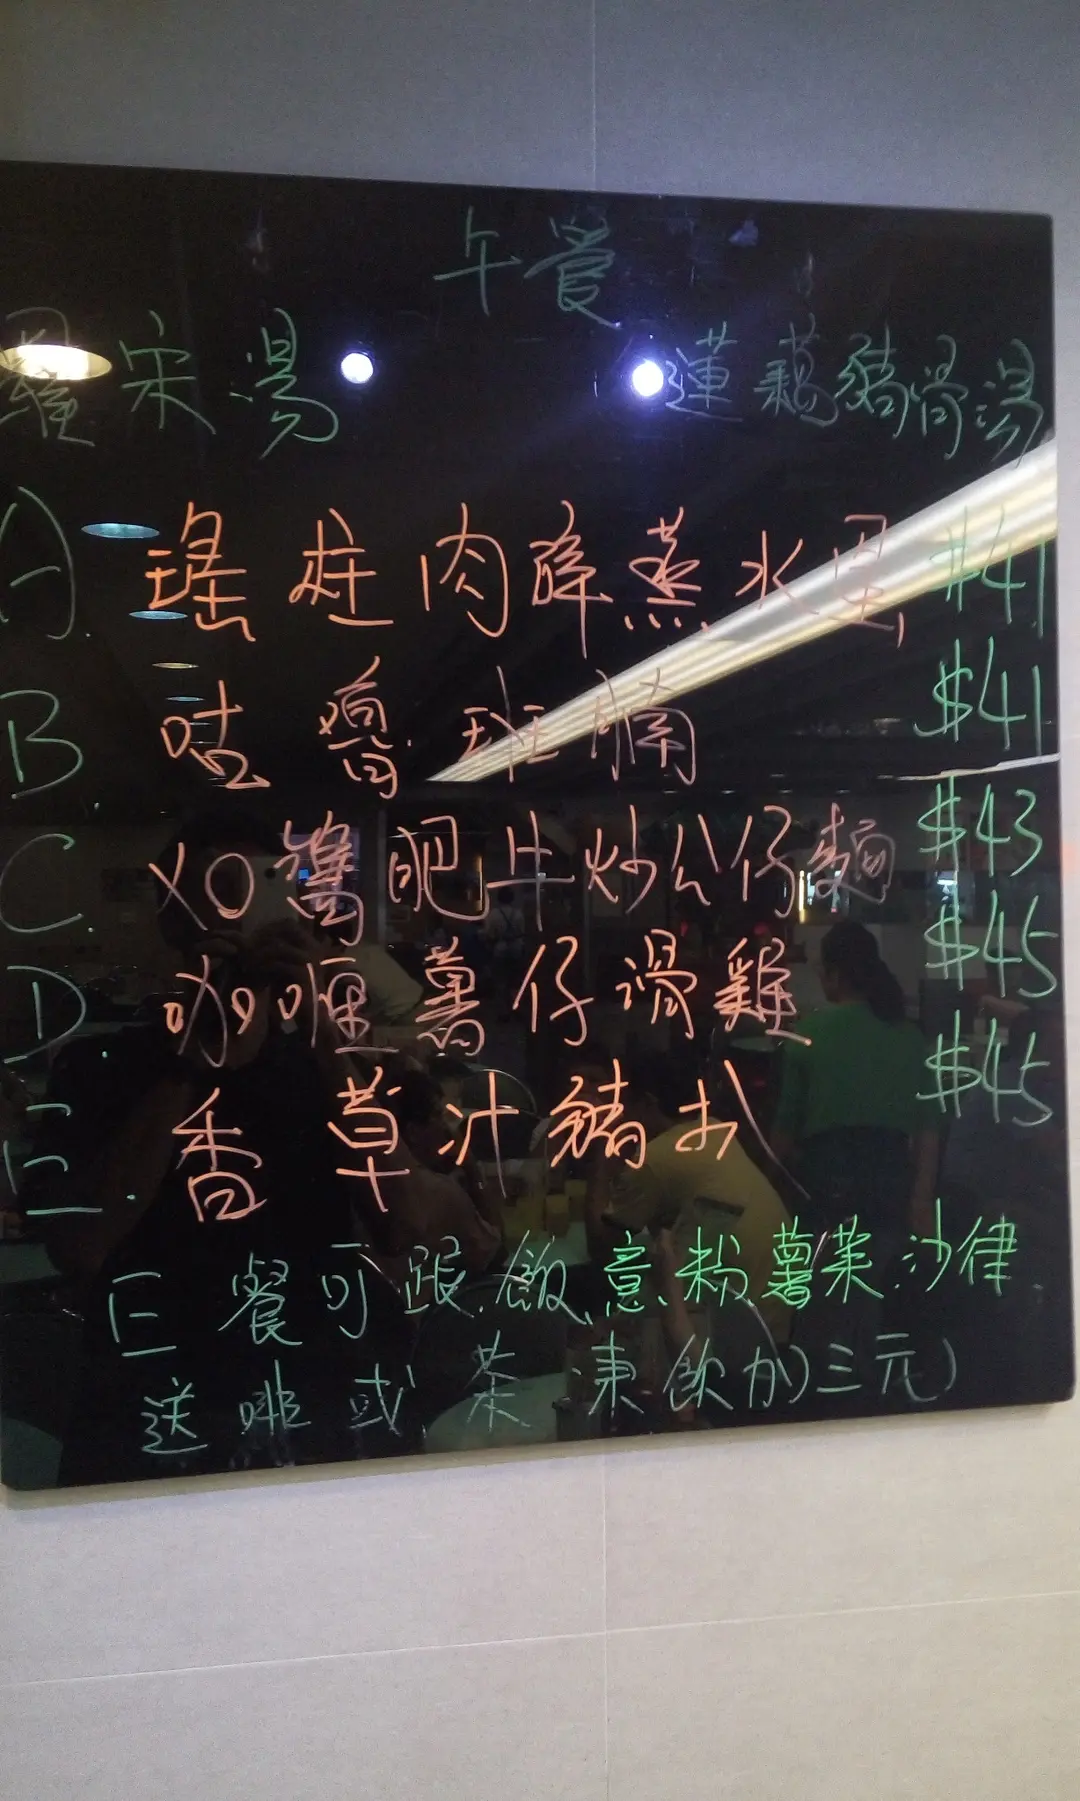 午餐
羅宋湯 蓮藕豬骨湯
A. 瑤柱肉碎蒸水蛋 $41
B. 咕嚕班腩 $41
C. XO醬肥牛炒公仔麵 $43
D. 咖喱薯仔滑雞 $45
E. 香草汁豬扒 $45
E餐可跟.飯.意粉薯菜.沙律
送啡或茶凍飲加三元